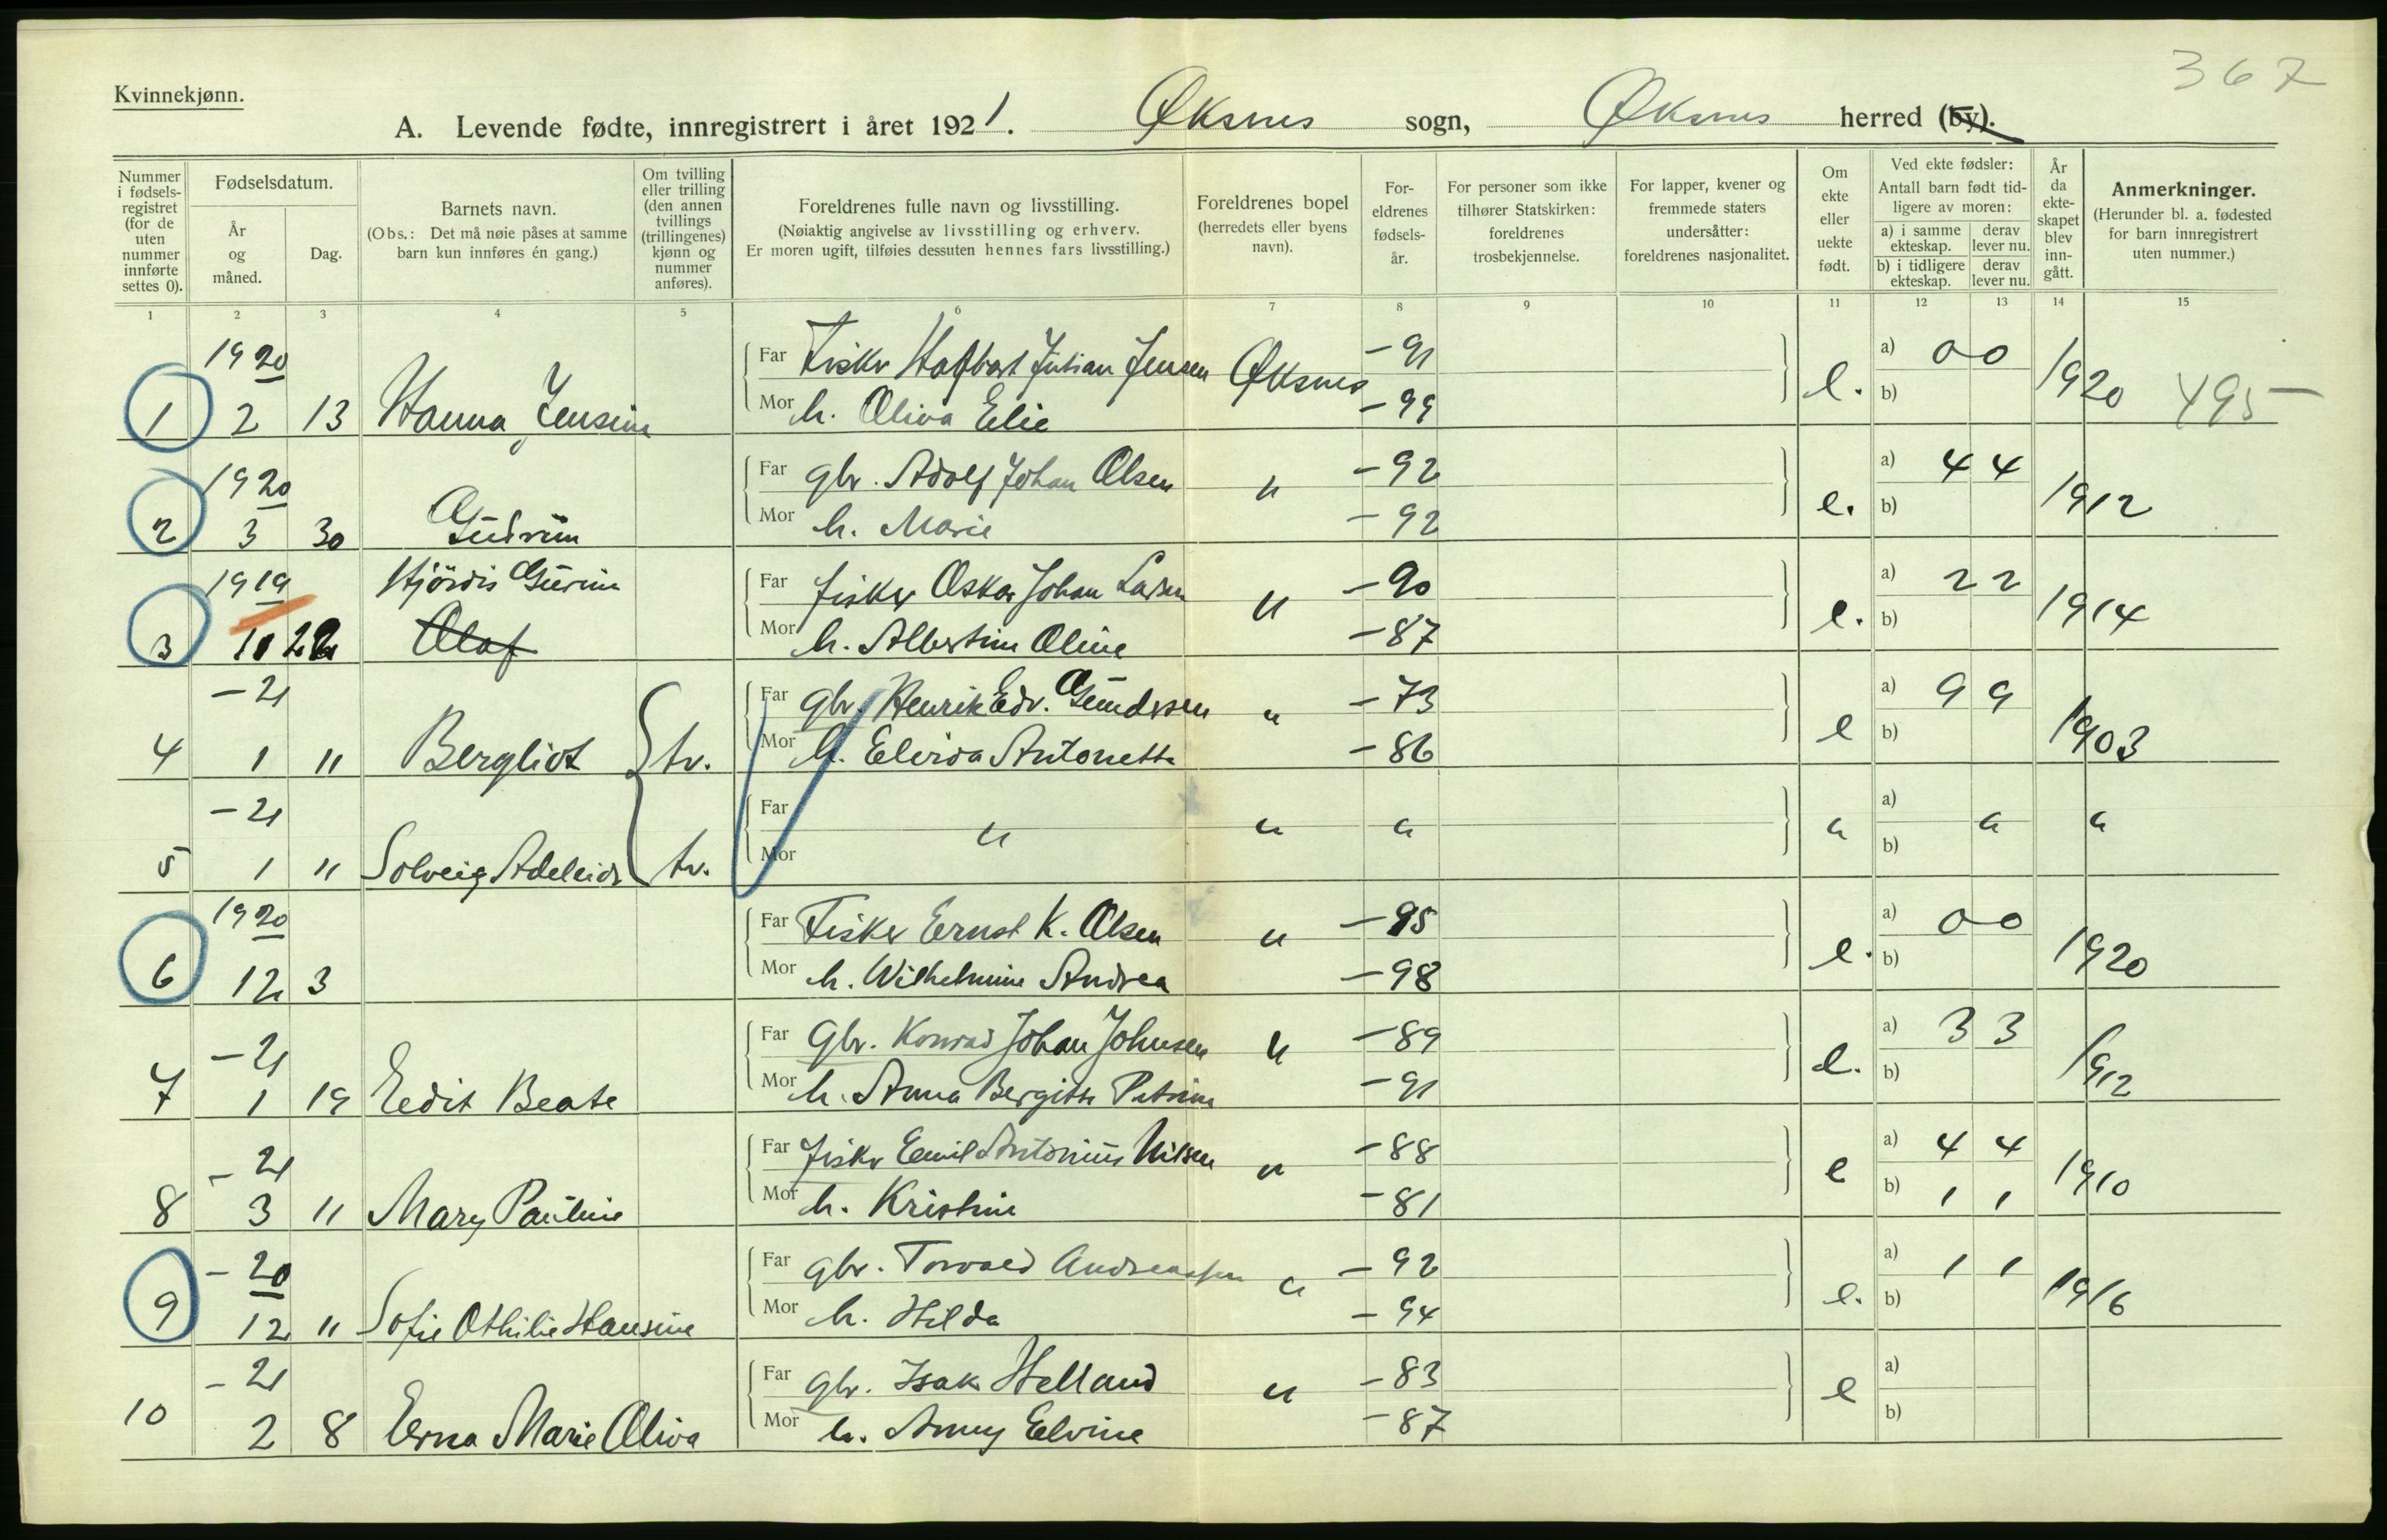 367
Kvinnekjønn.
A. Levende fødte, innregistrert i året 1921. Øksnes sogn, Øksnes herred (by).
Nummer i fødselsregistret (for de uten nummer innførte settes 0).
Fødselsdatum.
År og måned.
Dag.
Barnets navn.
(Obs.: Det må nøie påses at samme barn kun innføres én gang.)
Om tvilling eller trilling (den annen tvillings (trillingenes) kjønn og nummer anføres).
Foreldrenes fulle navn og livsstilling.
(Nøiaktig angivelse av livsstilling og erhverv.
Er moren ugift, tilføies dessuten hennes fars livsstilling.)
Foreldrenes bopel (herredets eller byens navn).
Foreldrenes fødselsår.
For personer som ikke tilhører Statskirken: foreldrenes trosbekjennelse.
For lapper, kvener og fremmede staters undersåtter: foreldrenes nasjonalitet.
Om ekte eller uekte født.
Ved ekte fødsler:
Antall barn født tidligere av moren:
a) i samme ekteskap. derav lever nu.
b) i tidligere ekteskap. derav lever nu.
År da ekteskapet blev inngått.
Anmerkninger.
(Herunder bl. a. fødested for barn innregistrert uten nummer.)
1 2 3 4 5 6 7 8 9 10 11 12 13 14 15
1920 Far Fisker Hafbart Julian Jensen Øksnes -91 a) 0 0
1 2 13 Hanna Jensine Mor h. Oliva Elie -99 e. b) 1920 495
1920 Far gbr. Adolf Johan Olsen " -92 a) 4 4
2 3 30 Gudrun Mor h. Marie -92 e. b) 1912
1919 Hjördis Gurine Far fisker Oskar Johan Larsen " -90 a) 2 2
3 10 22 Olaf Mor h. Albertine Oline -87 e. b) 1914
-21 Far gbr. Henrik Edv. Gundersen " -73 a) 9 9
4 1 11 Bergliot tv. Mor h. Elvira Antonette -86 e b) 1903
-21 Far " " " " a) " "
5 1 11 Solveig Adeleide tv. Mor b)
1920 Far Fisker Ernst K. Olsen " -95 a) 0 0
6 12 3 Mor h. Wilhelmine Andrea -98 e. b) 1920
-21 Far Gbr. Konrad Johan Johnsen " -89 a) 3 3
7 1 19 Eedit Beate Mor h. Anna Bergitte Petrine -91 e. b) 1912
-21 Far fisker Emil Antonius Nilsen " -88 a) 4 4
8 3 11 Mary Pauline Mor h. Kristine -81 e b) 1 1 1910
-20 Far gbr. Torvald Andreassen " -92 a) 1 1
9 12 11 Sofie Othilie Hansine Mor h. Hilda -94 e. b) 1916
-21 Far gbr. Isak Helland " -83 a)
10 2 8 Erna Marie Oliva Mor h. Anny Elvine -87 e b)